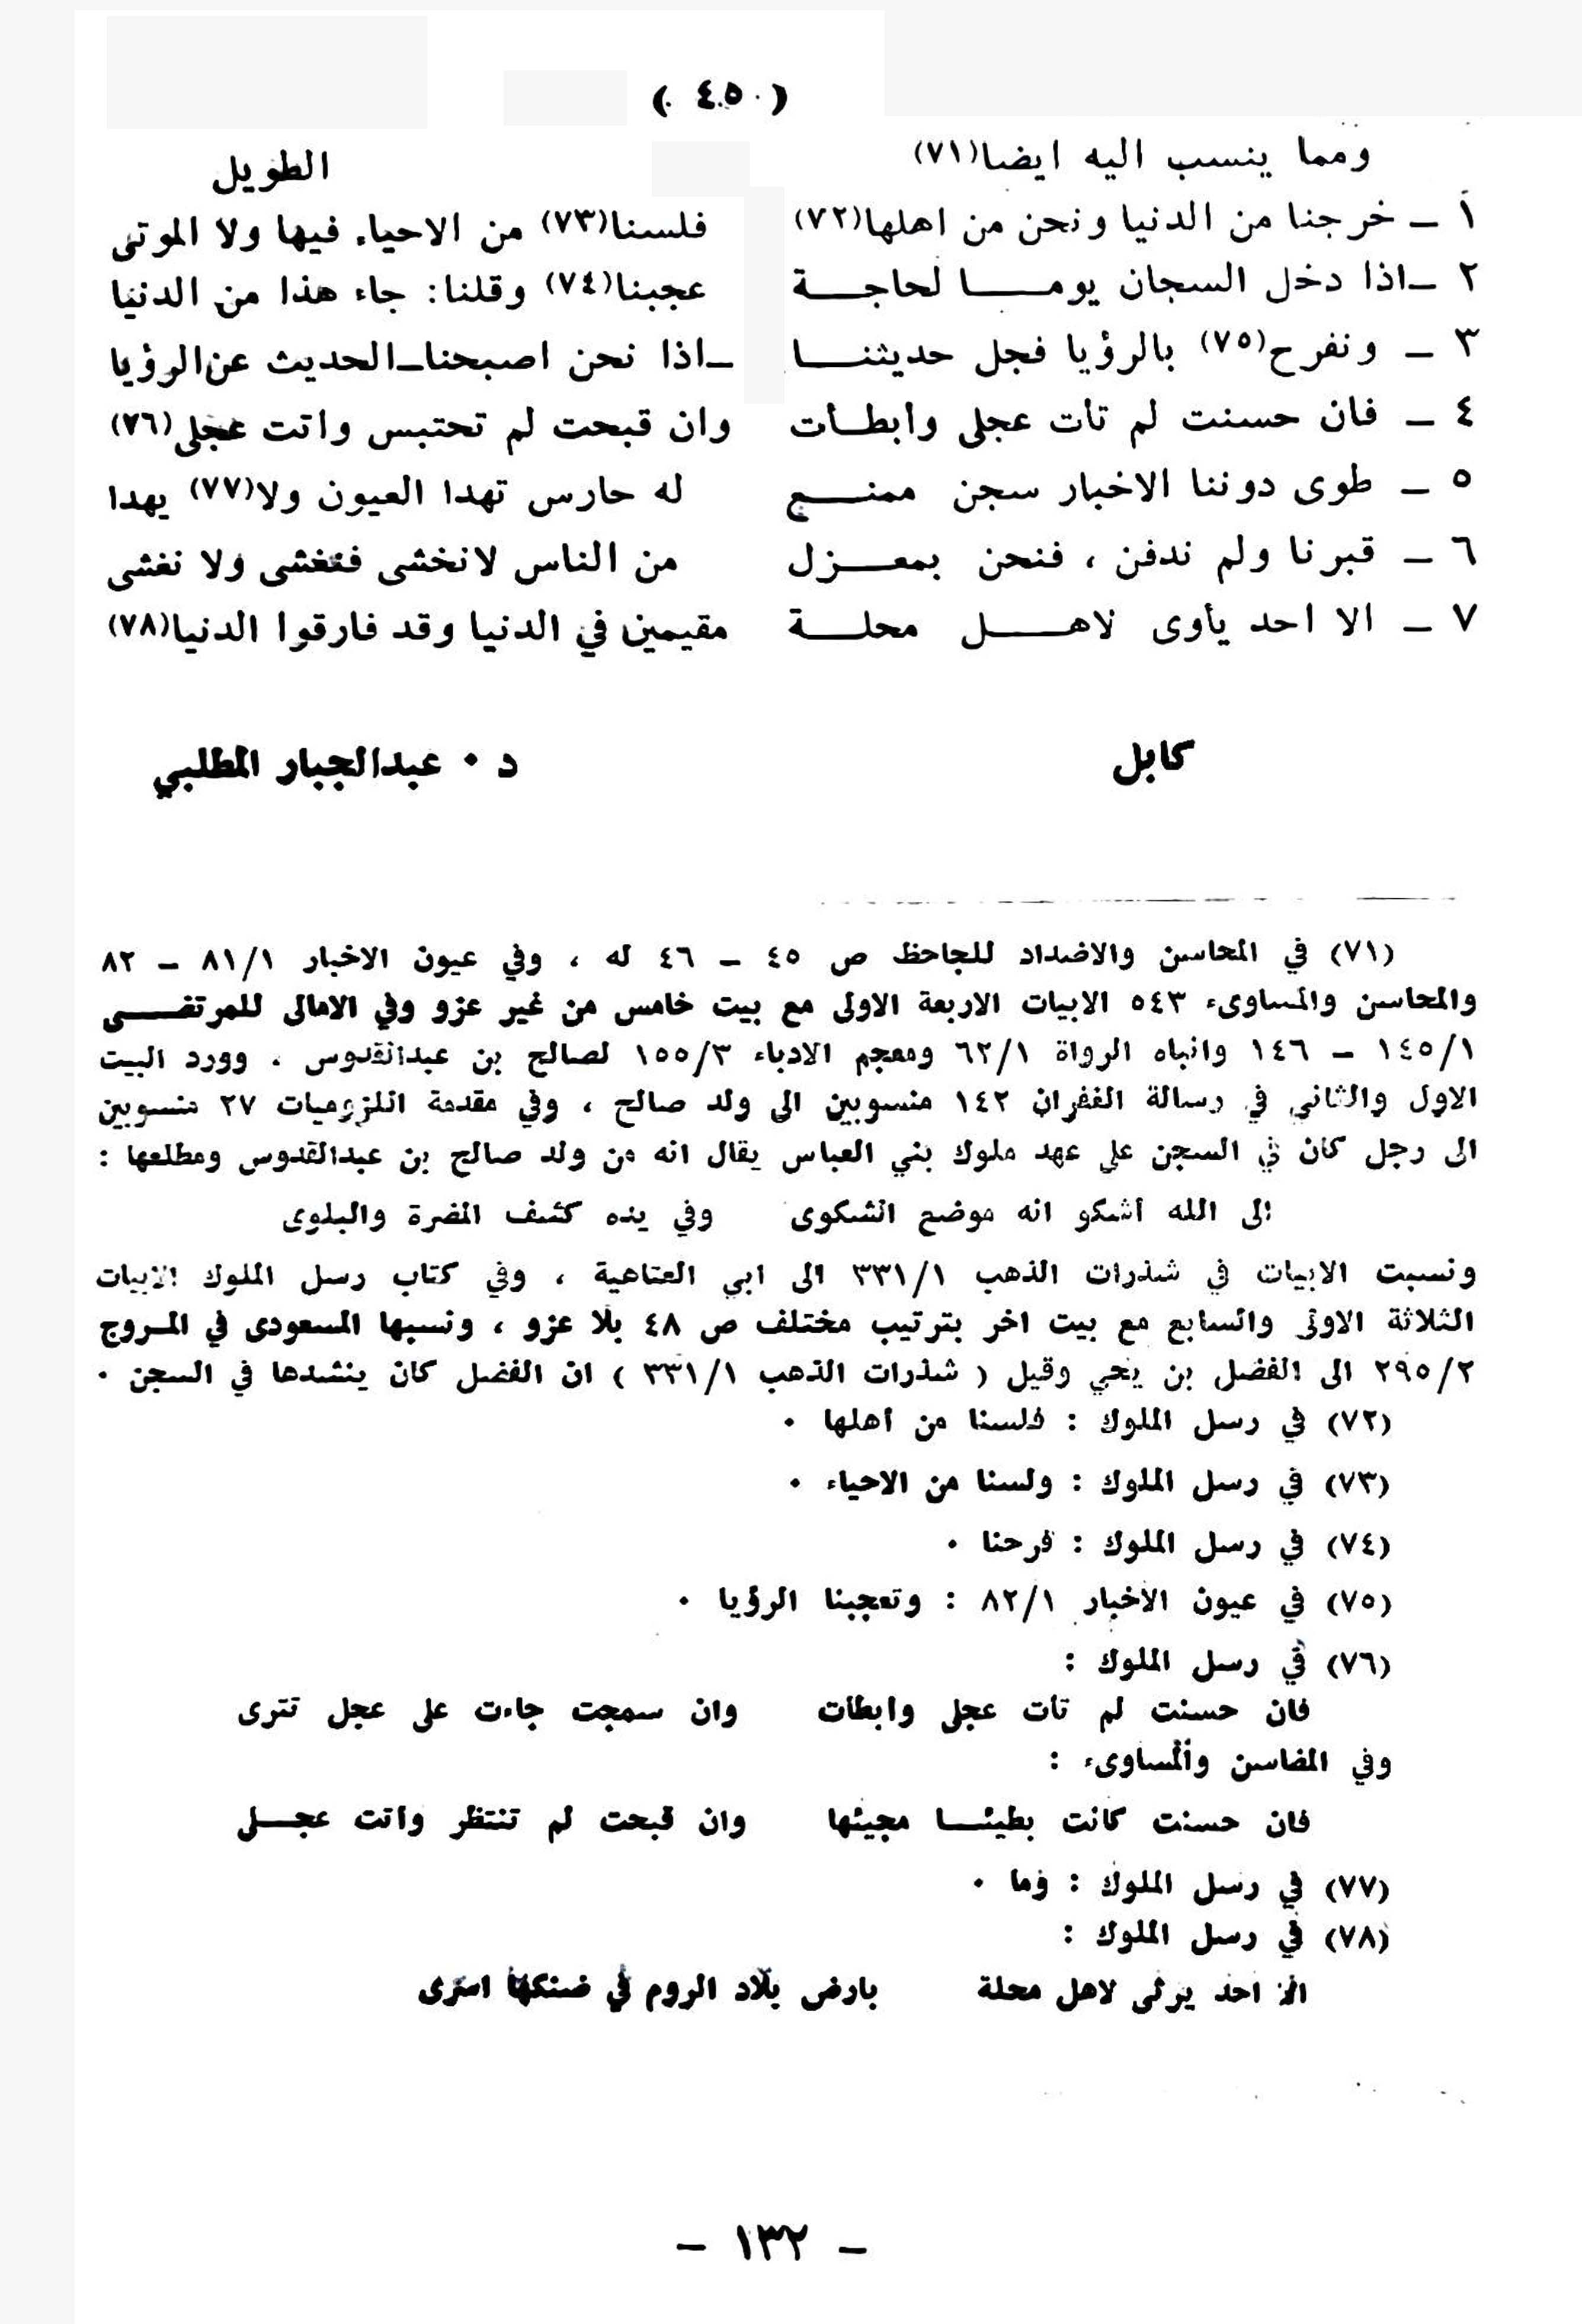 ( ٤٥ )
ومما ينسب اليه ايضا(٧١) الطويل
١ ـ خرجنا من الدنيا ونحن من اهلها(٧٢) فلسنا(٧٣) من الاحياء فيها ولا الموتى
٢ ـ اذا دخل السجان يومـــا لحاجـــة عجبنا(٧٤) وقلنا: جاء هذا من الدنيا
٣ ـ ونفرح(٧٥) بالرؤيا فجل حديثنـــا ـ اذا نحن اصبحنا ـ الحديث عن الرؤيا
٤ ـ فان حسنت لم تأت عجلى وأبطـأت وان قبحت لم تحتبس واتت عجلى(٧٦)
٥ ـ طوى دوننا الاخبار سجن ممنـــع له حارس تهدا العيون ولا(٧٧) يهدا
٦ ـ قبرنا ولم ندفن ، فنحن بمعـــزل من الناس لانخشى فنغشى ولا نغشى
٧ ـ الا احد يأوى لاهـــل محلـــة مقيمين في الدنيا وقد فارقوا الدنيا(٧٨)
كابل د ٠ عبدالجبار المطلبي
(٧١) في المحاسن والاضداد للجاحظ ص ٤٥ ـ ٤٦ له ، وفي عيون الاخبار ٨١/١ ـ ٨٢
والمحاسن والمساوىء ٥٤٣ الابيات الاربعة الاولى مع بيت خامس من غير عزو وفي الامالى للمرتضـــى
١٤٥/١ ـ ١٤٦ وانباه الرواة ٦٢/١ ومعجم الادباء ١٥٥/٣ لصالح بن عبدالقدوس . وورد البيت
الاول والثاني في رسالة الغفران ١٤٢ منسوبين الى ولد صالح ، وفي مقدمة اللزوميات ٢٧ منسوبين
الى رجل كان في السجن على عهد ملوك بني العباس يقال انه من ولد صالح بن عبدالقدوس ومطلعها :
الى الله اشكو انه موضع الشكوى وفي يده كشف المضرة والبلوى
ونسبت الابيات في شذرات الذهب ٣٣١/١ الى ابي العتاهية ، وفي كتاب رسل الملوك الابيات
الثلاثة الاولى والسابع مع بيت اخر بترتيب مختلف ص ٤٨ بلا عزو ، ونسبها المسعودى في المـروج
٢٩٥/٢ الى الفضل بن يحي وقيل ( شذرات الذهب ٣٣١/١ ) ان الفضل كان ينشدها في السجن ٠
(٧٢) في رسل الملوك : فلسنا من اهلها ٠
(٧٣) في رسل الملوك : ولسنا من الاحياء ٠
(٧٤) في رسل الملوك : فرحنا ٠
(٧٥) في عيون الاخبار ٨٢/١ : وتعجبنا الرؤيا ٠
(٧٦) في رسل الملوك :
فان حسنت لم تأت عجلى وابطأت وان سمجت جاءت على عجل تترى
وفي المحاسن والمساوىء :
فان حسنت كانت بطيئـــا مجيئها وان قبحت لم تنتظر واتت عجـــل
(٧٧) في رسل الملوك : وما ٠
(٧٨) في رسل الملوك :
الا احد يرثى لاهل محلة بارض بلاد الروم في ضنكها اسرى
ـ ١٣٢ ـ